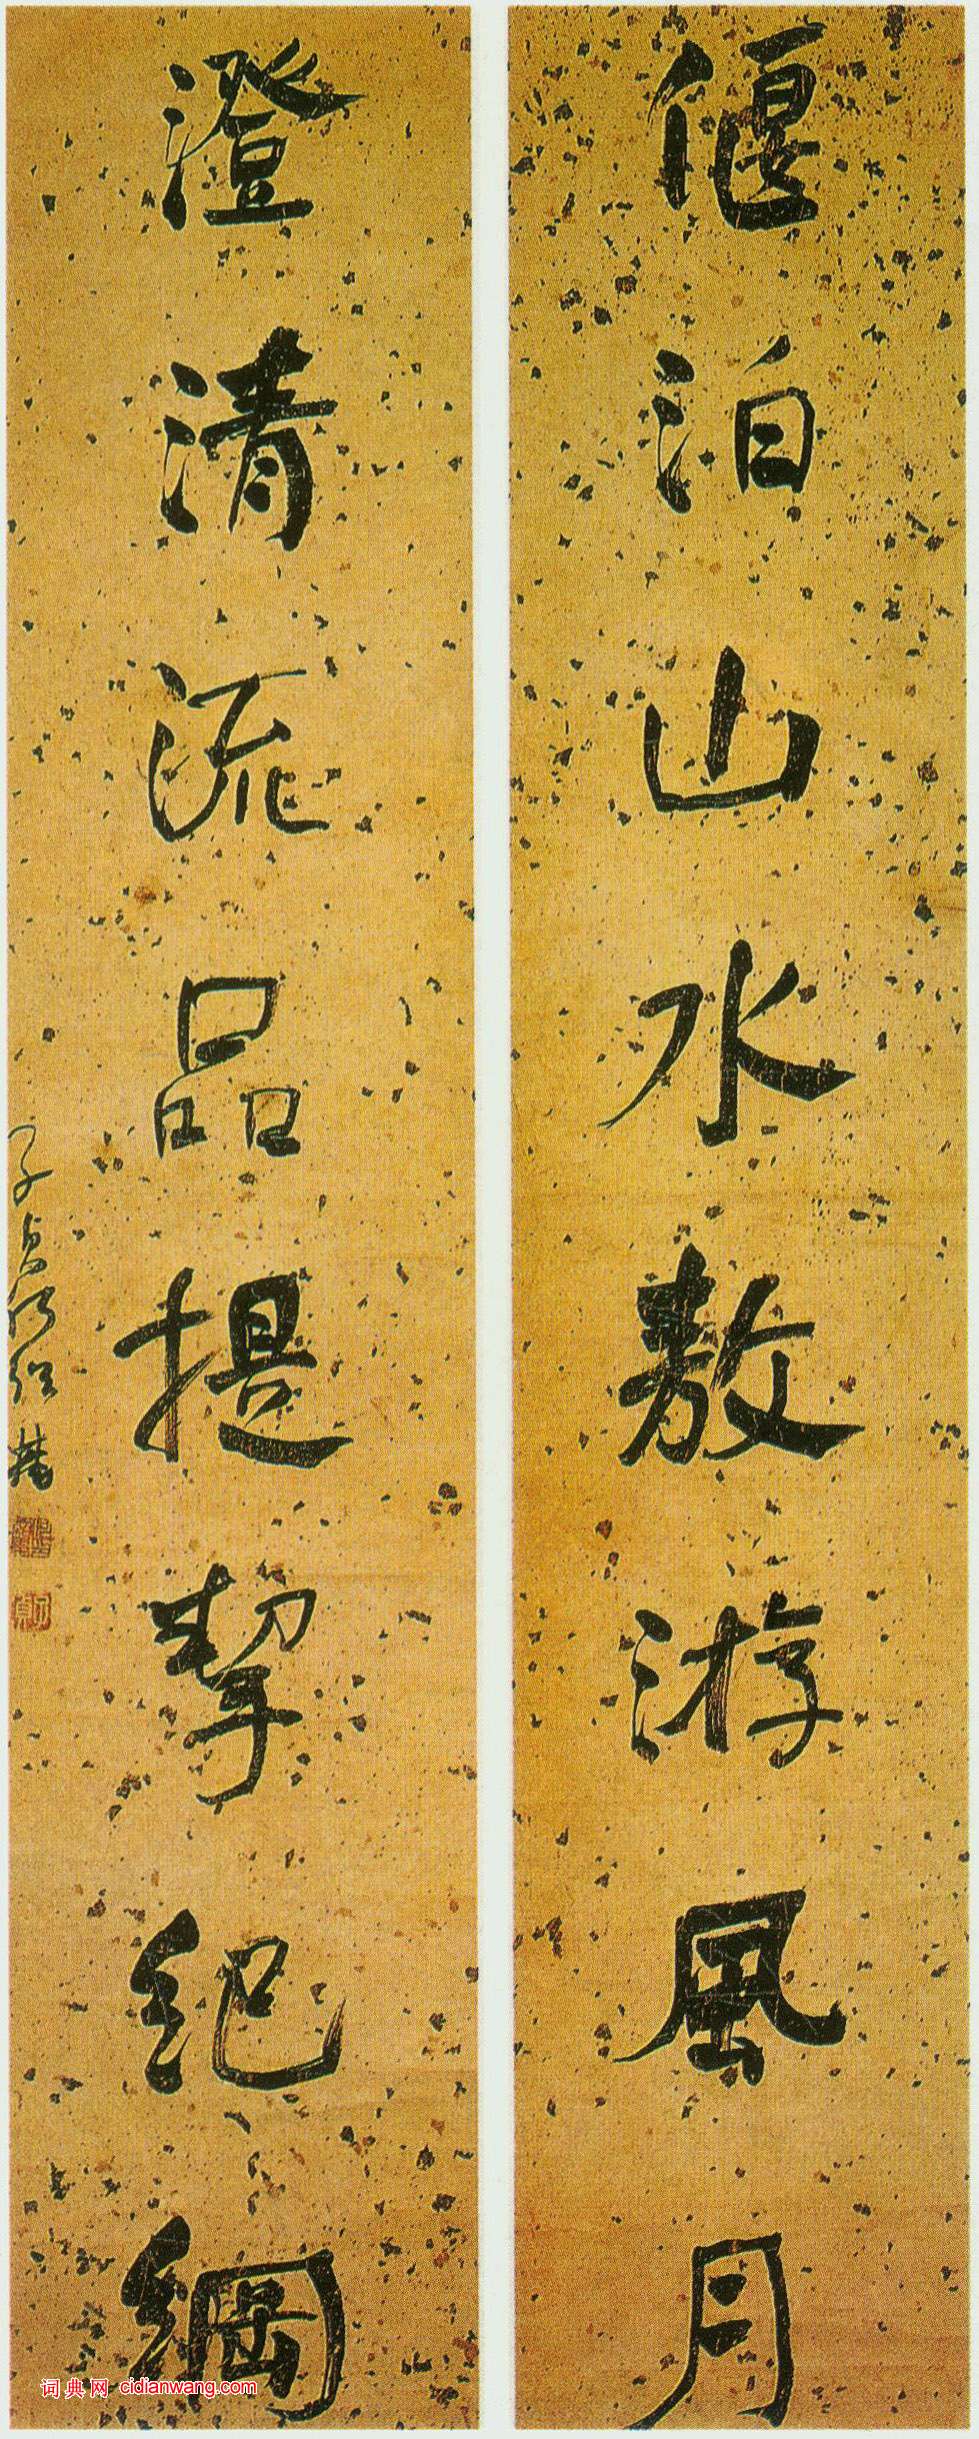 偃泊山水敖游風月
澄清流品提挈紀綱
子貞何紹基
词典网 cidianwang.com